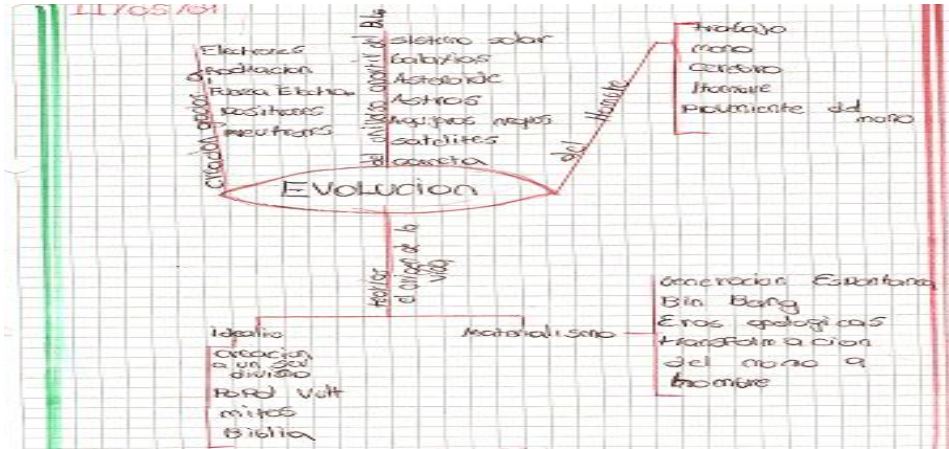 11/05/01
creacion
Electrones
Radiacion
Fuerza Electro
Positrones
neutrones
del universo apartir del
sistema solar
Galaxias
Asteroide
Astros
Agujeros negros
satelites
cometa
del Hombre
trabajo
mano
cerebro
Hombre
Proveniente del
mono
EVOLUCION
teorias
el origen de la
vida
Idealis
creacion
a un ser
divino
PoPol Vuh
mitos
Biblia
Materialismo
Generacion Espontanea
Bin Bang
Eras geologicas
transformacion
del mono a
hombre